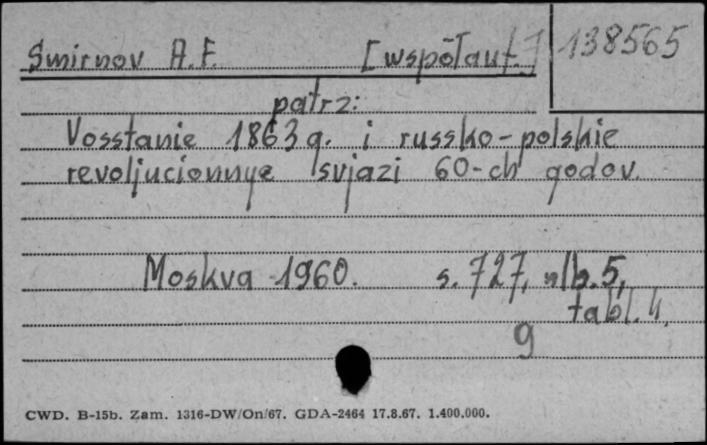 Smirnov A.F. [współaut.] 138565
patrz:
Vosstanie 1863 g. i russko-polskie
revoljucionnye svjazi 60-ch godov.
Moskva 1960. s. 727, nlb. 5,
tabl. 4.
9
CWD. B-15b. Zam. 1316-DW/On/67. GDA-2464 17.8.67. 1.400.000.